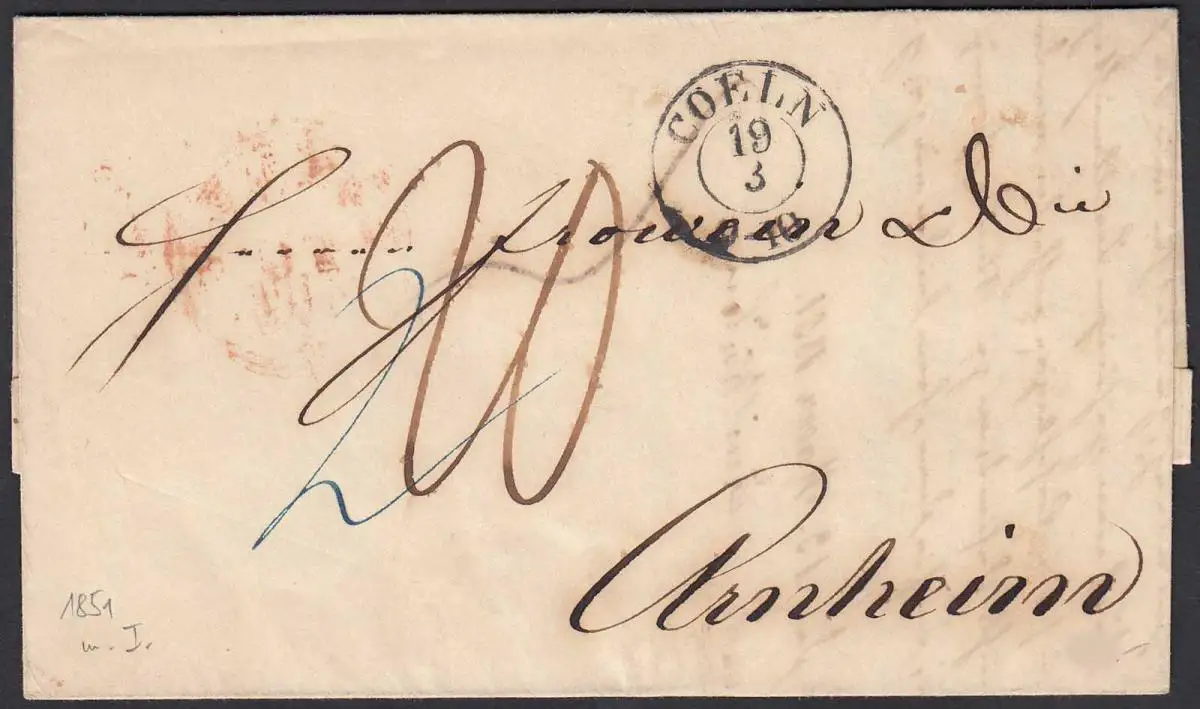 COELN
19
3
Frowein & Cie
20
2
Arnheim
1851
m. I.